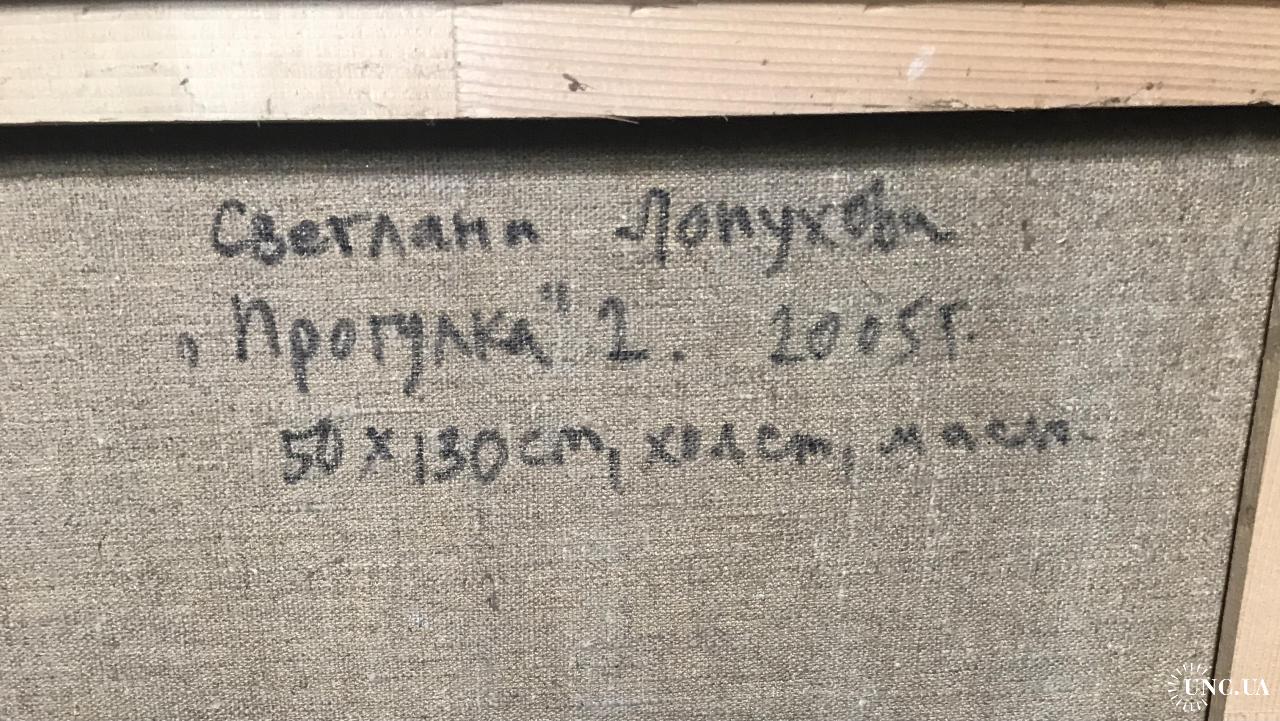 Светлана Лопухова
„Прогулка" 2. 2005г.
50х130cm, холст, масло.
UNC.UA